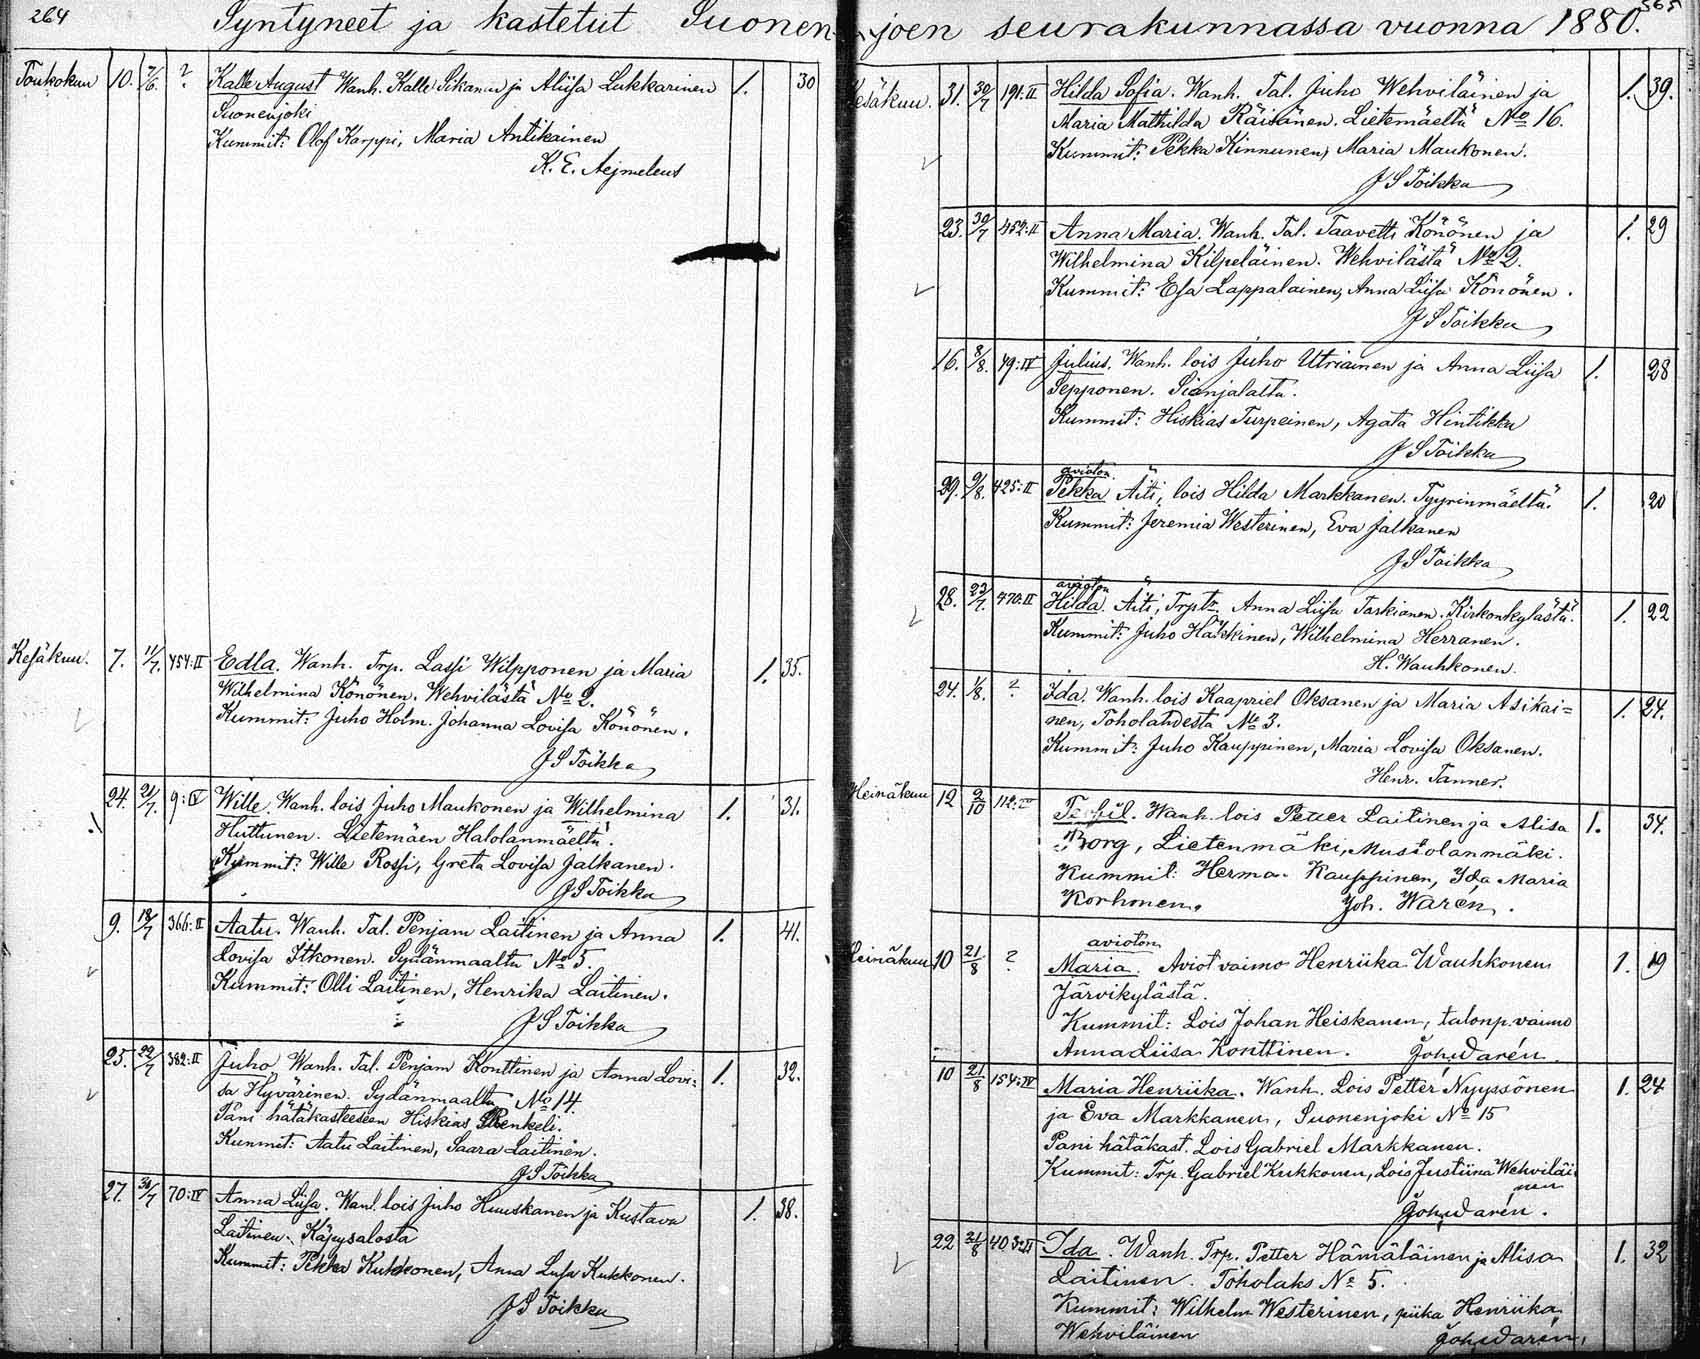 264
Syntyneet ja kastetut Suonen-
Toukokuu 10. 7/6. ? Kalle August Wanh. Kalle Sikanen ja Aliisa Lukkarinen 1. 30
Suonenjoki
Kummit: Olof Karppi, Maria Antikainen
K. E. Aejmeleus
Kesäkuu. 7. 11/7. 454:II Edla. Wanh. Trp. Lassi Wilpponen ja Maria 1. 35.
Wilhelmina Könönen. Wehvilästä No 2.
Kummit: Juho Holm. Johanna Lovisa Könönen.
J S Toikka
24. 21/7. 9:IV Wille. Wanh. lois Juho Maukonen ja Wilhelmina 1. 31.
Huttunen. Lietemäen Halolanmäeltä.
Kummit: Wille Rossi, Greta Lovisa Jalkanen.
J S Toikka
9. 18/7 366:II Aatu. Wanh. Tal. Penjam Laitinen ja Anna 1. 41.
Lovisa Itkonen. Sydänmaalta No 5.
Kummit: Olli Laitinen, Henrika Laitinen.
J S Toikka
25. 22/7 382:II Juho. Wanh. Tal. Penjam Konttinen ja Anna Lovi- 1. 32.
sa Hyvärinen. Sydänmaalta No 14.
Pani hätäkasteeseen Hiskias Renkeli.
Kummit: Aatu Laitinen, Saara Laitinen.
J S Toikka
27. 30/7 70:IV Anna Liisa. Wanh. lois Juho Huuskanen ja Kustava 1. 38.
Laitinen. Käpysalosta
Kummit: Pekka Kukkonen, Anna Liisa Kukkonen.
J S Toikka
565
joen seurakunnassa vuonna 1880.
Kesäkuu. 31. 30/7 191:II Hilda Sofia. Wanh. Tal. Juho Wehviläinen ja 1. 39.
Maria Mathilda Räisänen. Lietemäeltä No 16.
Kummit: Pekka Kinnunen, Maria Maukonen.
J S Toikka
23. 30/7 452:II Anna Maria. Wanh. Tal. Taavetti Könönen ja 1. 29
Wilhelmina Kilpeläinen. Wehvilästä No 2.
Kummit: Esa Lappalainen, Anna Liisa Könönen.
J S Toikka
16. 8/8. 49:IV Julius. Wanh. lois Juho Utriainen ja Anna Liisa 1. 28
Sepponen. Sianjalalta.
Kummit: Hiskias Turpeinen, Agata Hintikka
J S Toikka
avioton
29. 9/8. 425:II Pekka Äiti, lois Hilda Markkanen. Tyyrinmäeltä. 1. 20
Kummit: Jeremia Westerinen, Eva Jalkanen
J S Toikka
avioton
28. 23/7. 470:II Hilda. Äiti, Trptr. Anna Liisa Taskianen. Kirkonkylästä. 1. 22
Kummit: Juho Häkkinen, Wilhelmina Herranen.
H. Wauhkonen.
24. 1/8. ? Ida. Wanh. lois Kaapriel Oksanen ja Maria Asikai= 1. 24.
nen, Toholahdesta No 3.
Kummit: Juho Kauppinen, Maria Lovisa Oksanen.
Henr. Tanner.
Heinäkuu 12 9/10 Wanh. lois Petter Laitinen ja Alisa 1. 34.
Borg, Lietenmäki, Mustolanmäki.
Kummit: Herma. Kauppinen, Ida Maria
Korhonen. Joh. Warén.
avioton
Heinäkuu 10 21/8 ? Maria. Aviot vaimo Henriika Wauhkonen 1. 19
Järvikylästä.
Kummit: Lois Johan Heiskanen, talonp. vaimo
Anna Liisa Konttinen. Joh. Warén.
10 21/8 154:IV Maria Henriika. Wanh. Lois Petter Nyyssönen 1. 24
ja Eva Markkanen, Suonenjoki No 15
Pani hätäkast. Lois Gabriel Markkanen.
Kummit: Trp. Gabriel Kukkonen, Lois Justiina Wehviläi-
nen
Joh. Warén.
22 31/8 403:II Ida. Wanh. Trp. Petter Hämäläinen ja Alisa 1. 32
Laitinen. Toholaks No 5.
Kummit: Wilhelm Westerinen, piika Henriika
Wehviläinen Joh. Warén.